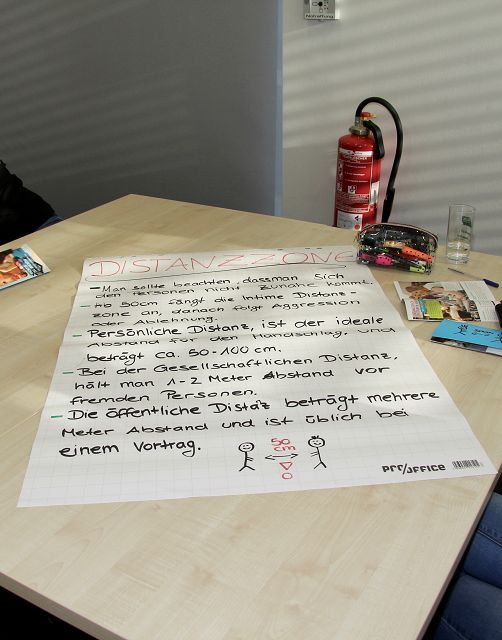 Notrettung
DISTANZZONE
- Man sollte beachten, dassman sich
den Personen nicht zunahe kommt.
- Ab 50cm fängt die Intime Distanz-
zone an, danach folgt Aggression
oder Ablehnung.
- Persönliche Distanz, ist der ideale
Abstand für den Handschlag, und
beträgt ca. 50-100 cm.
- Bei der Gesellschaftlichen Distanz,
hält man 1-2 Meter Abstand vor
fremden Personen.
- Die öffentliche Distaz beträgt mehrere
Meter Abstand und ist üblich bei
einem Vortrag.
50
cm
pro/office